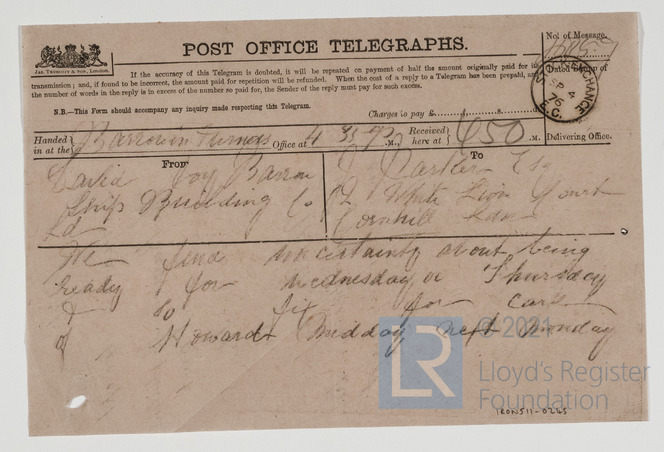 POST OFFICE TELEGRAPHS.
JAS. TRUSCOTT & SON, London.
If the accuracy of this Telegram is doubted, it will be repeated on payment of half the amount originally paid for its
transmission; and, if found to be incorrect, the amount paid for repetition will be refunded. When the cost of a reply to a Telegram has been prepaid, and
the number of words in the reply is in excess of the number so paid for, the Sender of the reply must pay for such excess.
N.B.—This Form should accompany any inquiry made respecting this Telegram.
Charges to pay £ s. d.
No. of Message.
Dated Stamp of
EXCHANGE
SP 4
76
E.C.
Delivering Office.
Handed in at the Barrow in Furness Office at 4 35 P .M., Received here at 4 50 .M.
From
David Joy Barrow
Ship Building Co
Ld
To
J Parker Esq
12 White Lion Court
Cornhill Ldn
We find uncertainty about being
ready for Wednesday or Thursday
& so fix for care
of Howards Midday next Monday
LR
© 2021
Lloyd's Register
Foundation
IRON511-0245